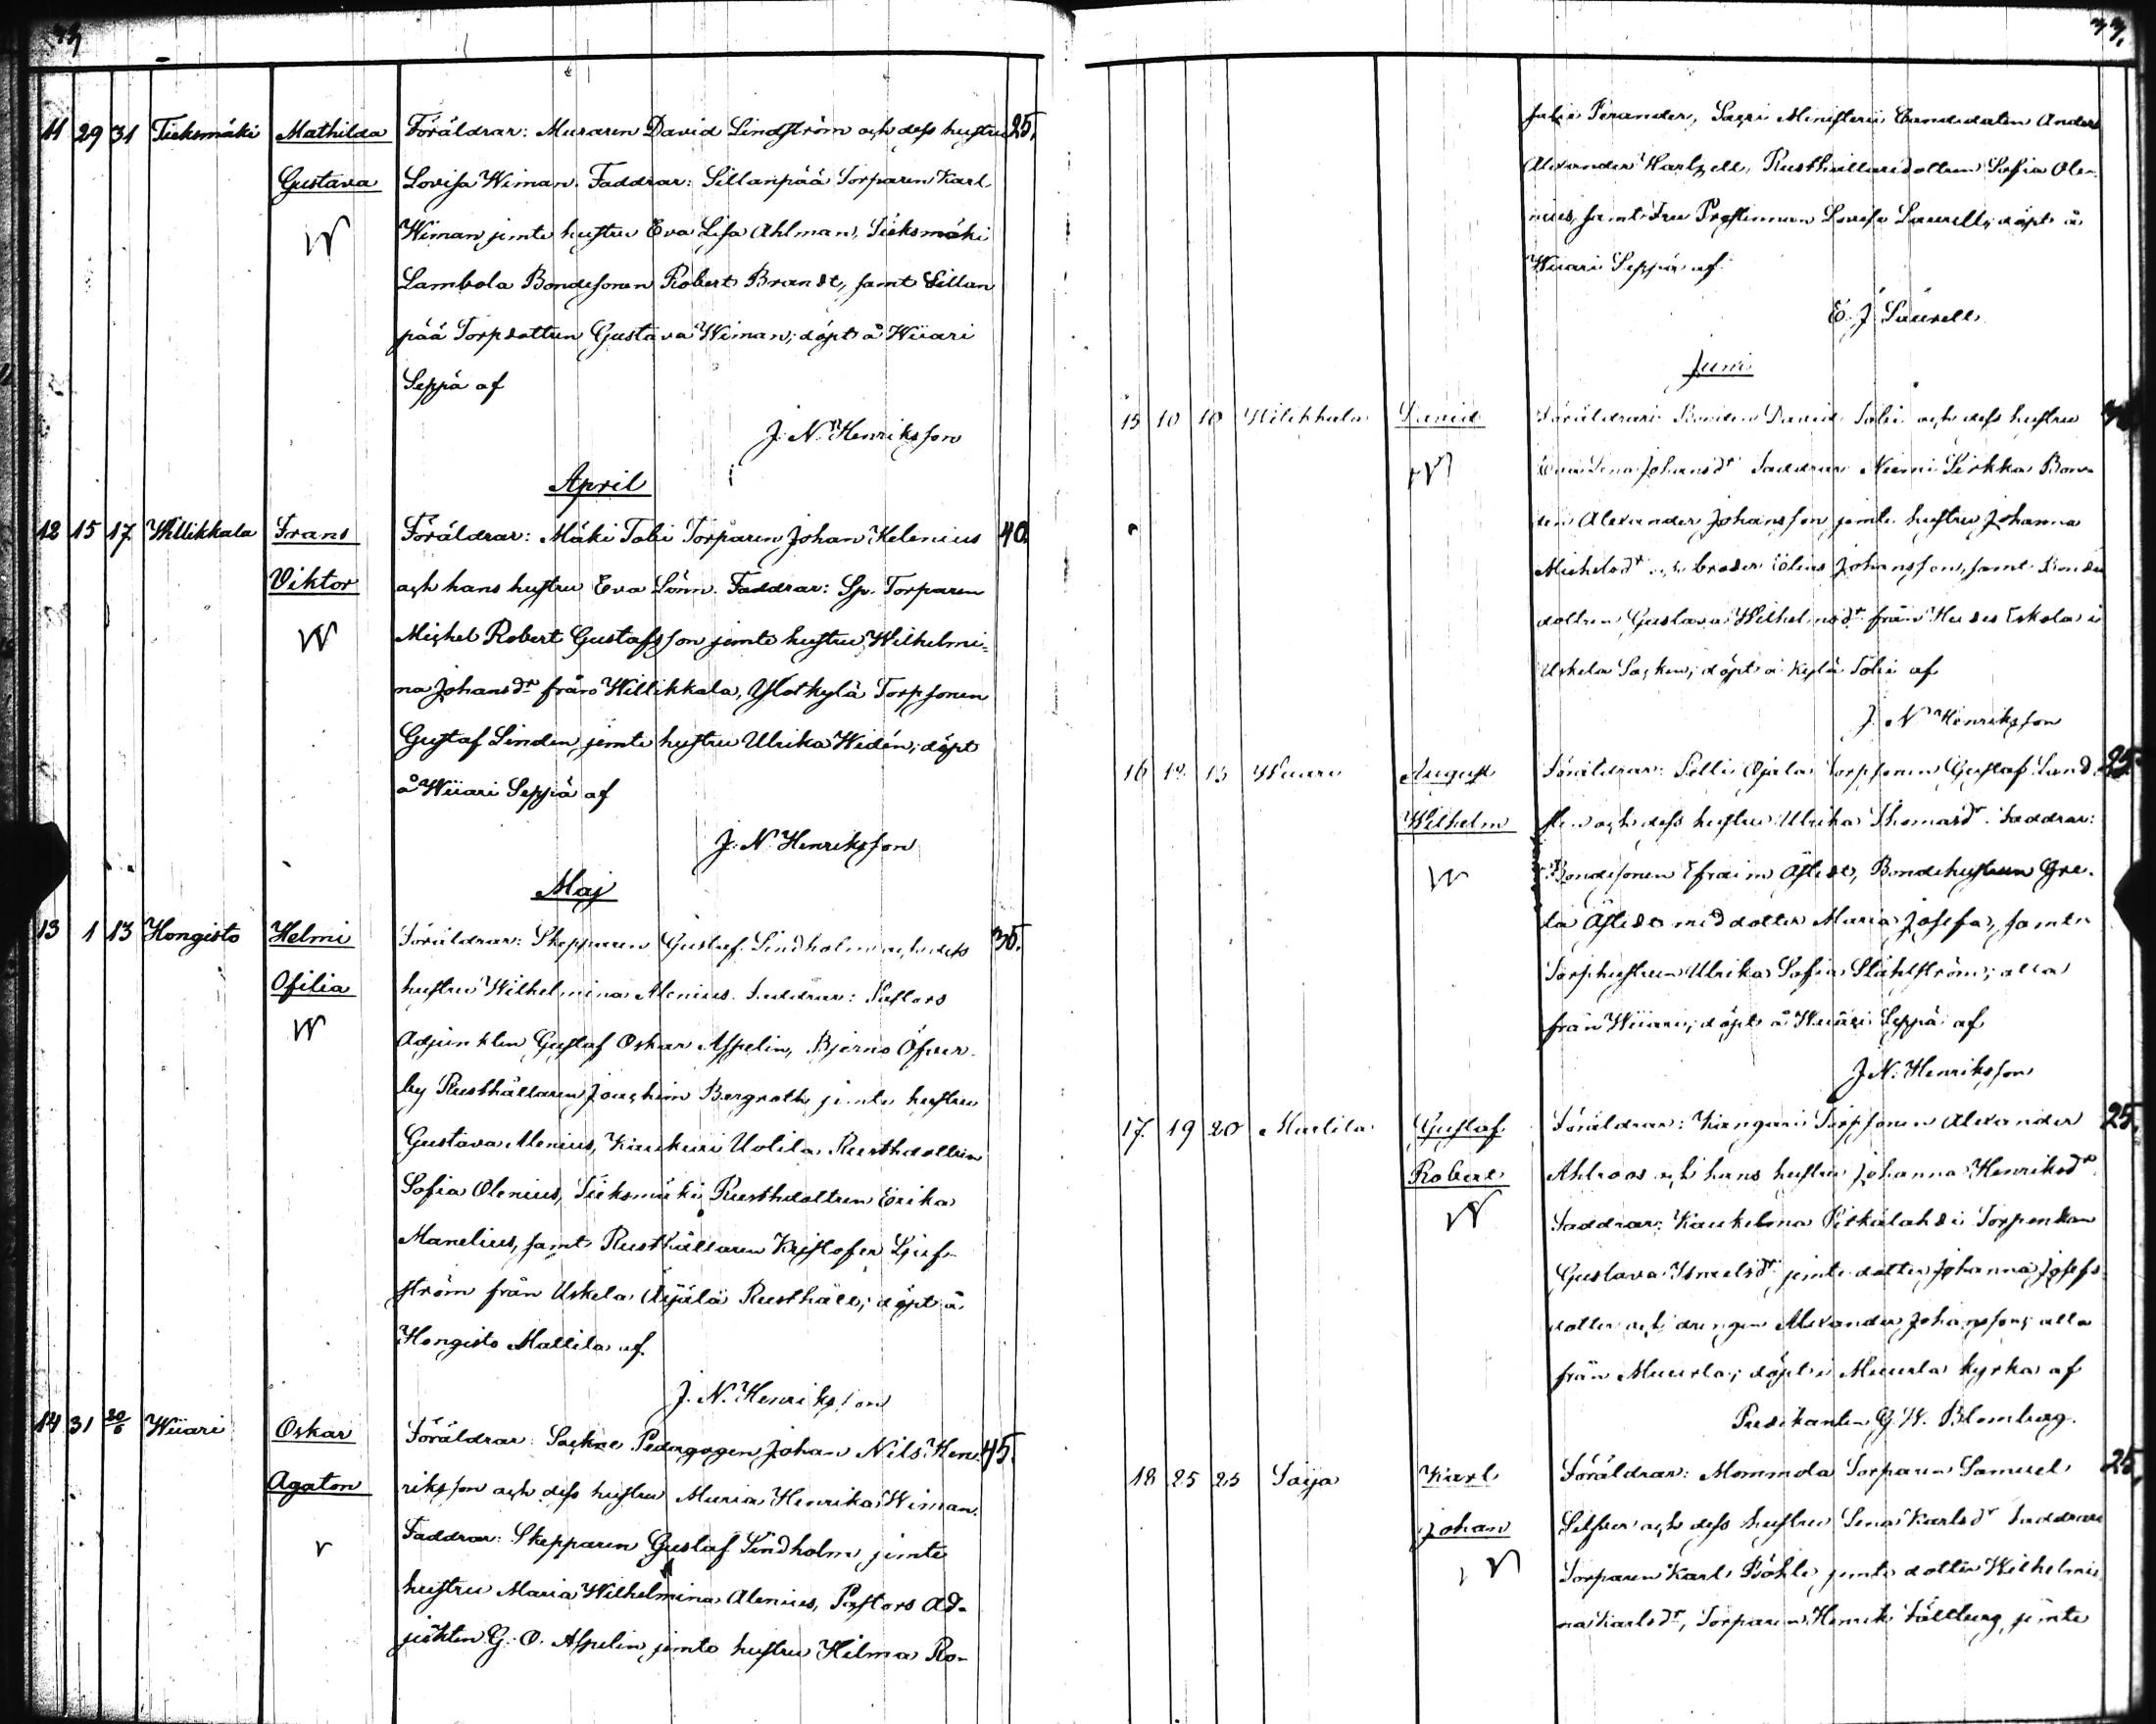 33.
11 29 31 Tieksmäki Mathilda Föräldrar: Muraren David Lindström och dess hustru 25.
Gustava Lovisa Wiman. Faddrar: Sillanpää Torparen Karl
Wiman jemte hustru Eva Lisa Ahlman, Tieksmäki
Lambola Bondesonen Robert Brandt, samt Sillan
pää Torpdottren Gustava Wiman; döpt å Wiiari
Seppä af
J. N. Henriksson
April
12 15 17 Willikkala Frans Föräldrar: Mäki Tobi Torparen Johan Helenius 40.
Viktor och hans hustru Eva Lönn. Faddrar: Sp. Torparen
Michel Robert Gustafsson jemte hustru Wilhelmi=
na Johansdr från Willikkala, Ylöskylä Torpsonen
Gustaf Linden jemte hustru Ulrika Widén; döpt
å Wiiari Seppä af
J. N. Henriksson
Maj
13 1 13 Hongisto Helmi Föräldrar: Skepparen Gustaf Lindholm och dess 35.
Ofilia hustru Wilhelmina Alenius. Faddrar: Pastors
Adjunkten Gustaf Oskar Aspelin, Bjerno Öfver-
by Rusthållaren Joachim Bergroth jemte hustru
Gustava Alenius, Kaukuri Uotila Rusthdottren
Sofia Olenius, Tieksmäki Rusthdottren Erika
Manelius, samt Rusthållaren Kristofer Ljuf-
ström från Uskela Äijälä Rusthåll; döpt å
Hongisto Mattila af
J. N. Henriksson
14 31 20/6 Wiiari Oskar Föräldrar: Sockne Pedagogen Johan Nils Hen- 45.
Agaton riksson och dess hustru Maria Henrika Wiman.
Faddrar: Skepparen Gustaf Lindholm jemte
hustru Maria Wilhelmina Alenius, Pastors Ad-
jukten G. O. Aspelin jemte hustru Hilma Ro-
33.
Perander, Sacri Ministerii Candidaten Anders
Alexander Hartzell, Rusthållaredottren Sofia Ole-
nius, samt Fru Prostinnan Lovisa Laurell; döpt å
Wiiari Seppä af
E. J. Laurell
Juni
15 10 10 Willikkala David Föräldrar: Bonden David Tobi och dess hustru
Lena Johansdr Faddrar: Niemi Sirkka Bon-
den Alexander Johansson jemte hustru Johanna
Michelsdr och broder Elias Johansson, samt Bonde
dottren Gustava Wilhelmsdr från Eskola i
Uskela Socken; döpt å Kylä Tobi af
J. N. Henriksson
16 12 13 Wiiari August Föräldrar: Pelli Ojala Torpsonen Gustaf Lund 25.
Wilhelm sten och dess hustru Ulrika Thomasdr. Faddrar:
Bondesonen Efraim Östedt, Bondehustrun Gre-
ta Östedt med dotter Maria Josefa, samt
Torphustrun Ulrika Sofia Ståhlström; alla
från Wiiari; döpt å Wiiari Seppä af
J. N. Henriksson
17. 19 20 Mattila Gustaf Föräldrar: Kangari Torpsonen Alexander 25.
Robert Ahlroos och hans hustru Johanna Henriksdr
Faddrar: Kaukelma Pitkälahdi Torpenkan
Gustava Israelsdr jemte dotter Johanna Josefs
dotter och drengen Alexander Johansson; alla
från Muurla; döpt i Muurla kyrka af
Predikanten G. W. Blomberg.
18 25 25 Saija Karl Föräldrar: Mommola Torparen Samuel 25.
Johan Silfver och dess hustru Lena Karlsdr Faddrar:
Torparen Karl Böhle jemte dotter Wilhelmi
na Karlsdr, Torparen Henrik Fällberg, jemte